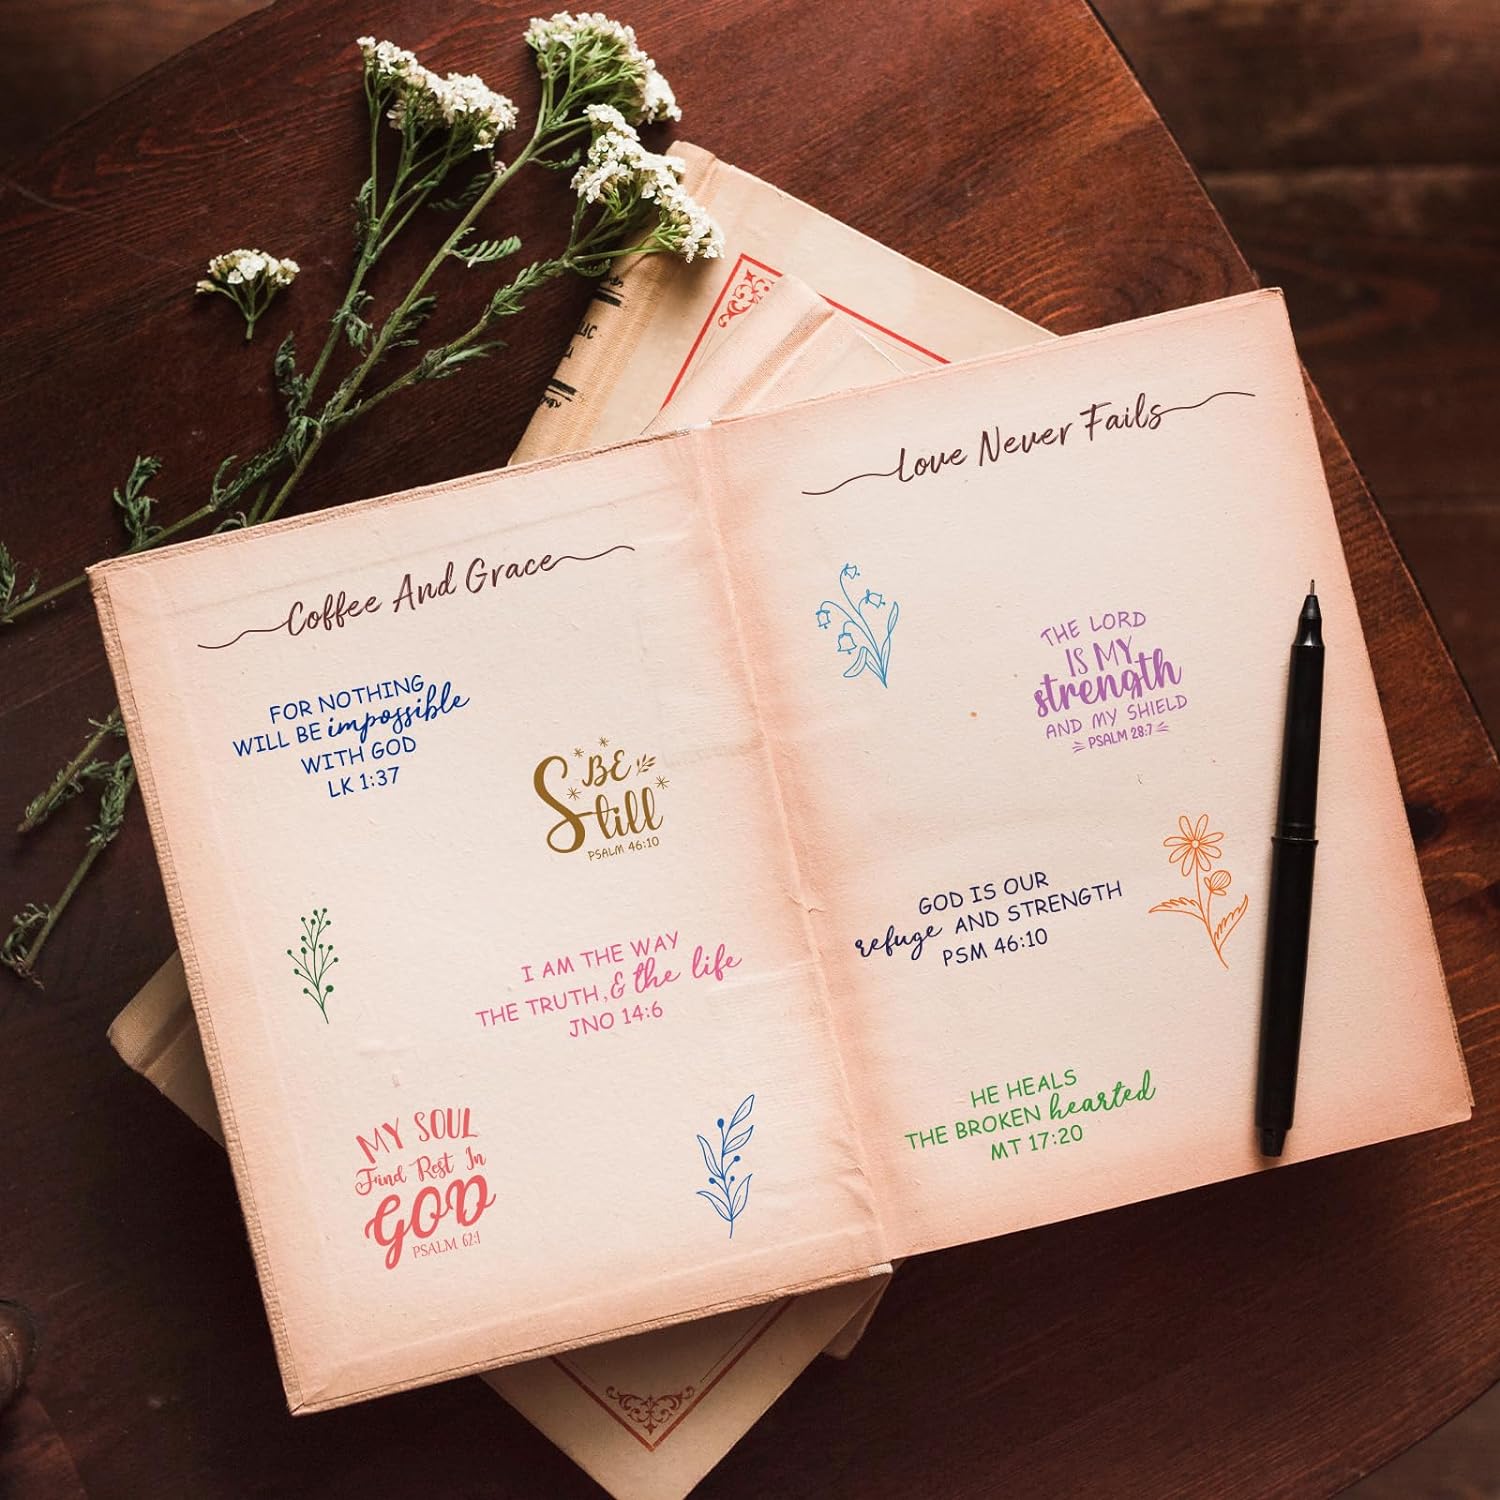 Coffee And Grace
FOR NOTHING
WILL BE impossible
WITH GOD
LK 1:37
BE
Still
PSALM 46:10
I AM THE WAY
THE TRUTH, & the life
JNO 14:6
MY SOUL
Find Rest In
GOD
PSALM 62:1
Love Never Fails
THE LORD
IS MY
strength
AND MY SHIELD
PSALM 28:7
GOD IS OUR
refuge AND STRENGTH
PSM 46:10
HE HEALS
THE BROKEN hearted
MT 17:20